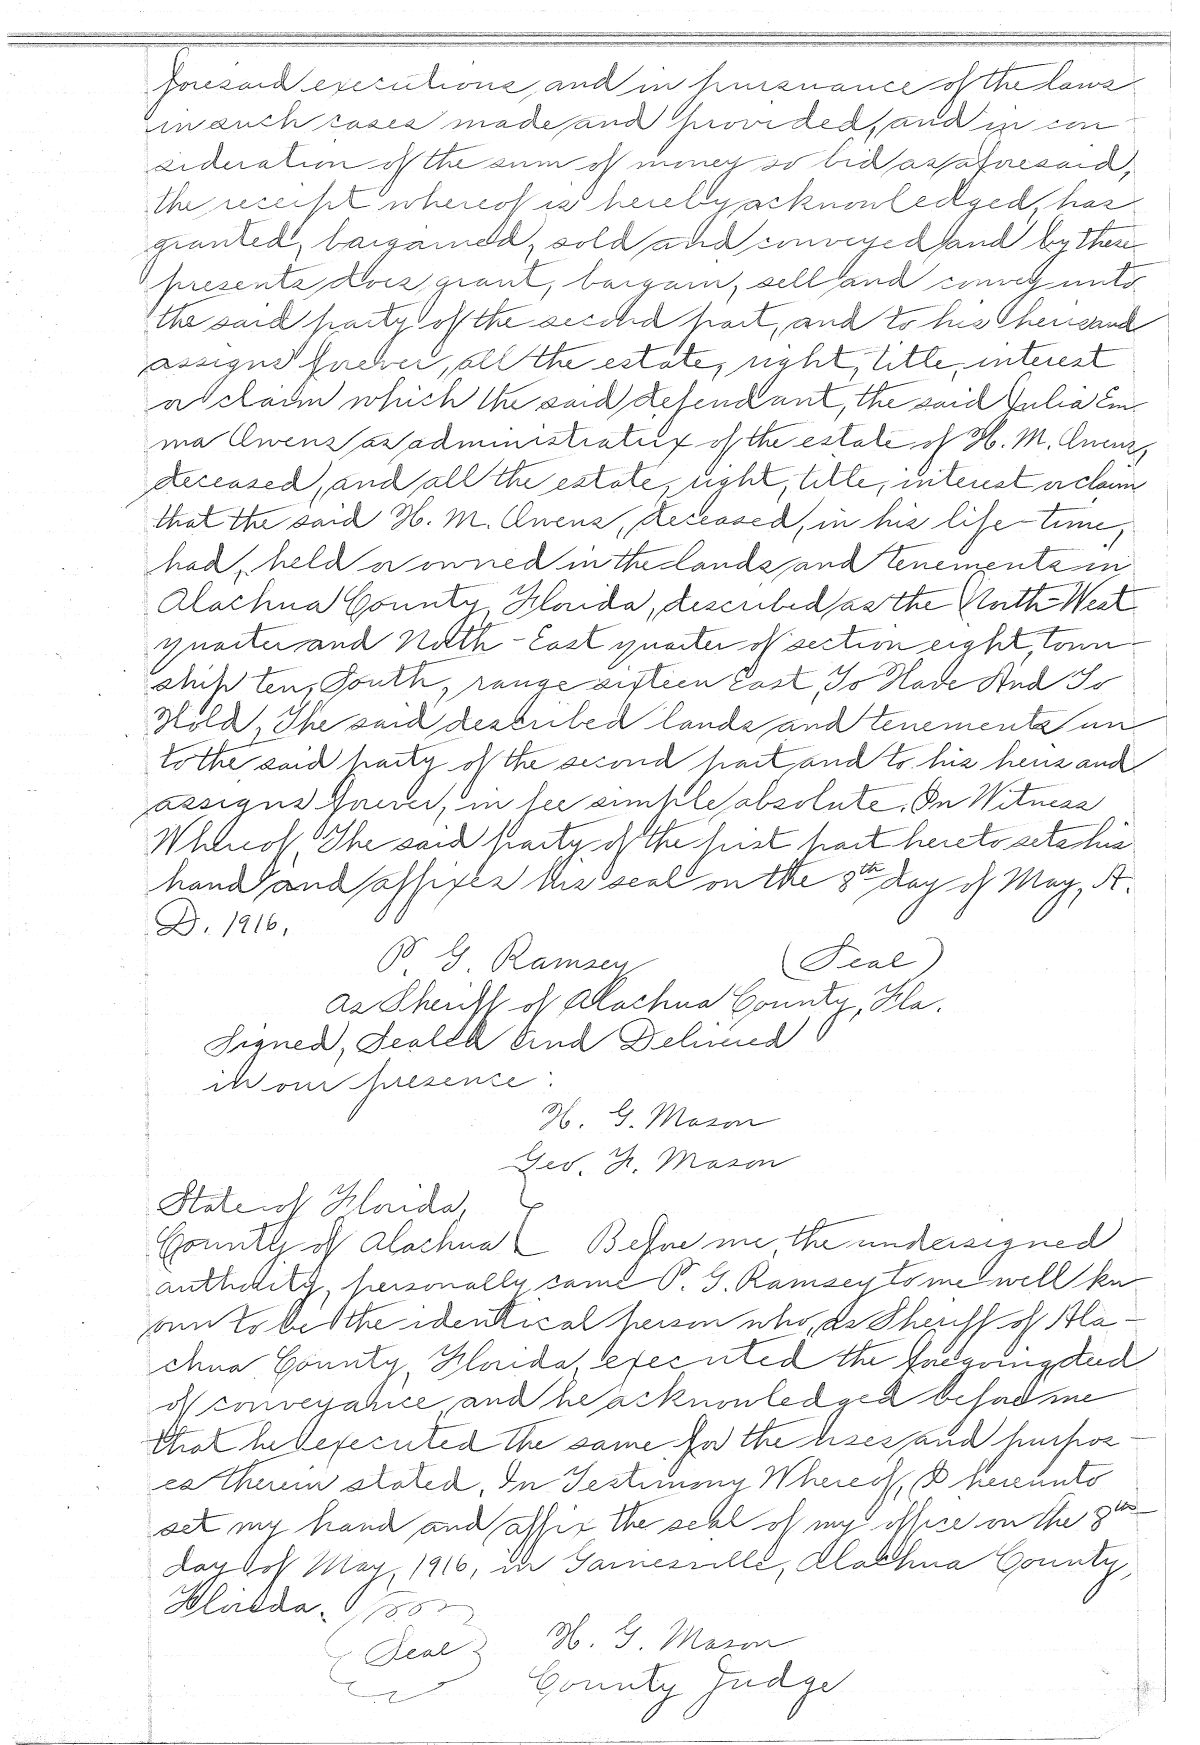 foresaid executions, and in pursuance of the laws
in such cases made and provided, and in con
sideration of the sum of money so bid as aforesaid,
the receipt whereof is hereby acknowledged, has
granted, bargained, sold and conveyed and by these
presents does grant, bargain, sell and convey unto
the said party of the second part, and to his heirs and
assigns forever, all the estate, right, title, interest
or claim which the said defendant, the said Julia Em-
ma Owens as administratrix of the estate of H. M. Owens,
deceased, and all the estate, right, title, interest or claim
that the said H. M. Owens, deceased, in his life-time,
had, held or owned in the lands and tenements in
Alachua County, Florida, described as the North-West
quarter and North-East quarter of section eight, town-
ship ten, South, range sixteen East, To Have And To
Hold, The said described lands and tenements un
to the said party of the second part and to his heirs and
assigns forever, in fee simple absolute. In Witness
Whereof, The said party of the first part hereto sets his
hand and affixes his seal on the 8th day of May, A.
D. 1916,
P. G. Ramsey (Seal)
As Sheriff of Alachua County, Fla.
Signed, Sealed and Delivered
in our presence:
H. G. Mason
Geo. F. Mason
State of Florida,
County of Alachua } Before me, the undersigned
authority, personally came P. G. Ramsey to me well kn
own to be the identical person who, as Sheriff of Ala-
chua County, Florida, executed the foregoing deed
of conveyance, and he acknowledged before me
that he executed the same for the uses and purpos-
es therein stated. In Testimony Whereof, I hereunto
set my hand and affix the seal of my office on the 8th
day of May, 1916, in Gainesville, Alachua County,
Florida.
Seal H. G. Mason
County Judge